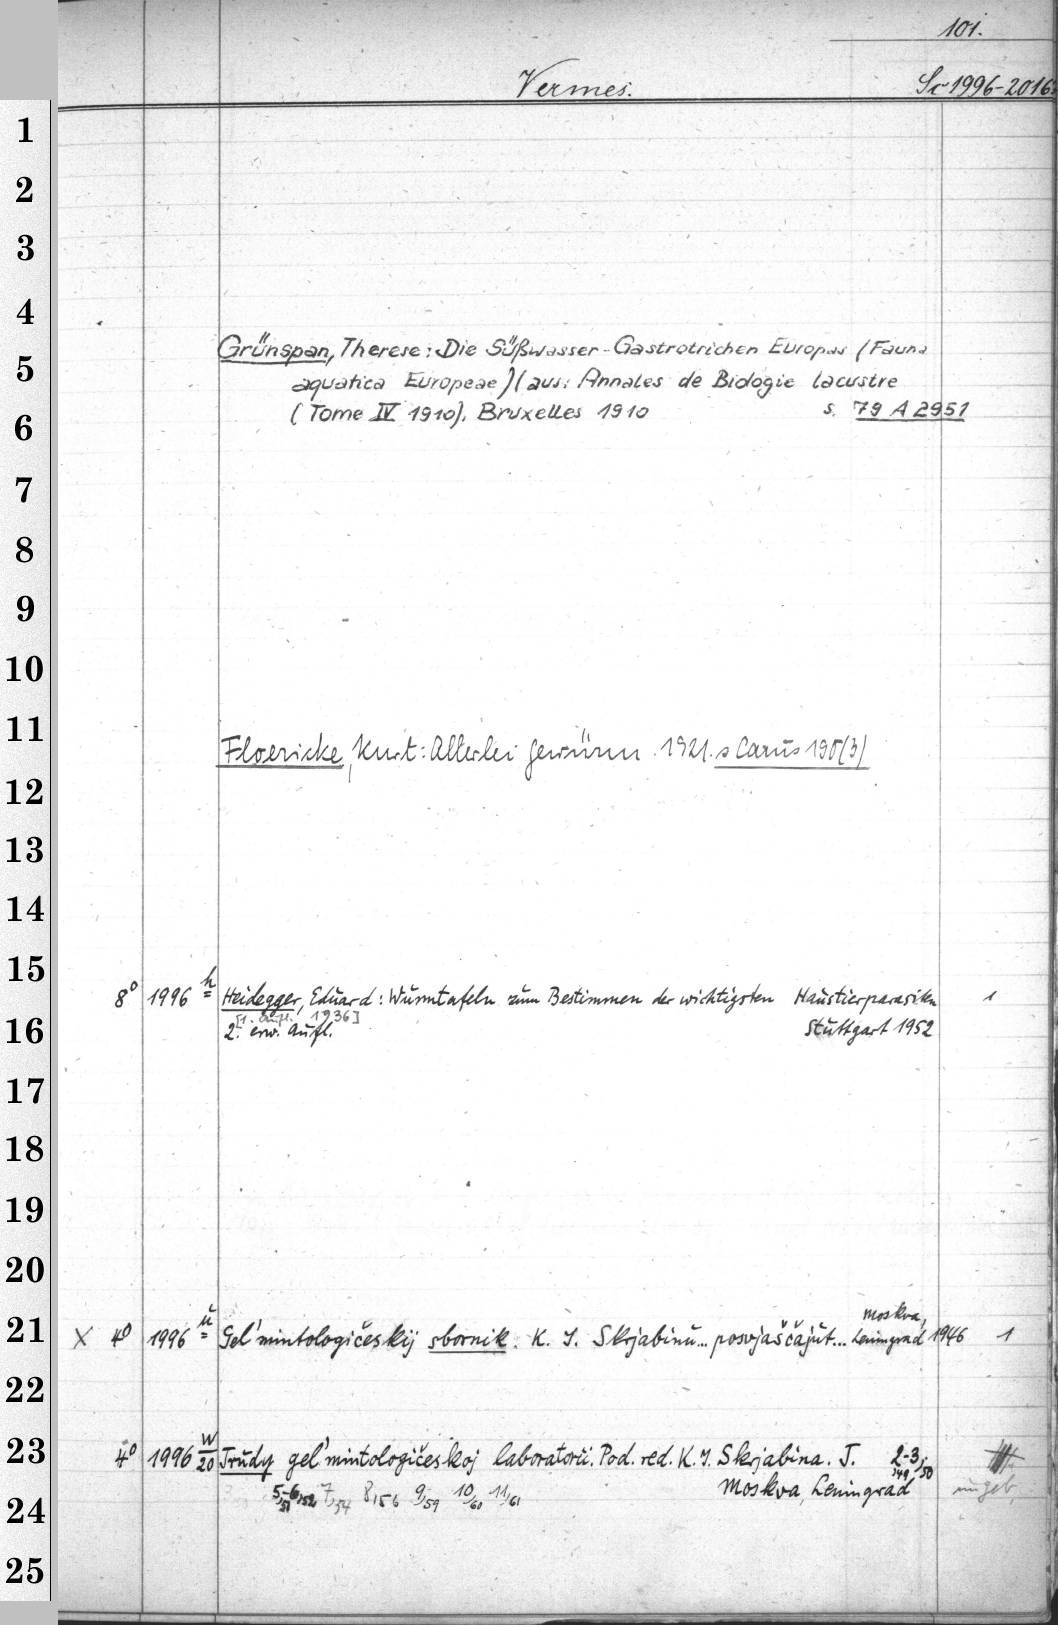 101.
Vermes. Sc 1996-2016
1
2
3
4
Grünspan, Therese: Die Süßwasser-Gastrotrichen Europas (Fauna
5
aquatica Europeae) (aus: Annales de Biologie lacustre
6
(Tome IV 1910). Bruxelles 1910 s. 79 A 2951
7
8
9
10
11
Floericke, Kurt: Allerlei Gewürm. 1921. s Carus 190(3)
12
13
14
15
8° 1996 h Heidegger, Eduard: Wurmtafeln zum Bestimmen der wichtigsten Haustierparasiten 1
[1. Aufl. 1936]
16
2. erw. Aufl. Stuttgart 1952
17
18
19
20
Moskva,
21
X 4° 1996 u Gel'mintologičeskij sbornik. K. I. Skrjabinu... posvjaščajut... Leningrad 1946 1
22
23
4° 1996 w/20 Trudy gel'mintologičeskoj laboratorii. Pod. red. K. I. Skrjabina. T. 2-3,49,50
Moskva, Leningrad ungeb.
5,51 6,52 7,54 8,56 9,59 10/60 11/61
24
25